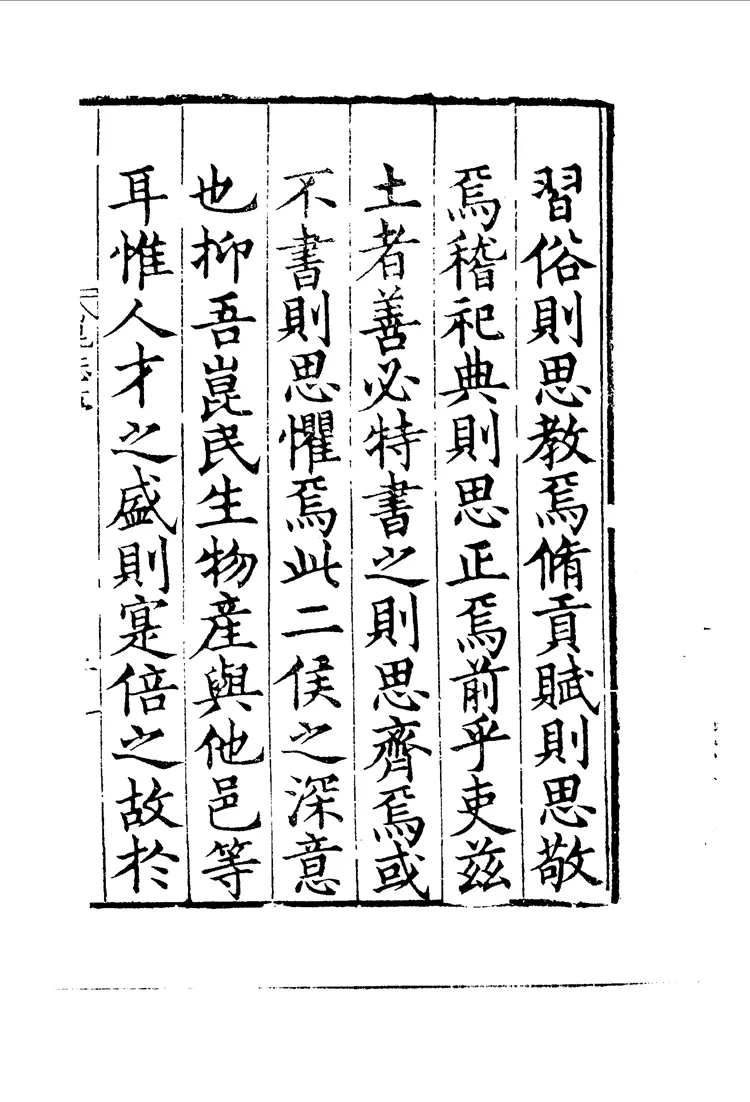 習俗則思教焉脩貢賦則思敬
焉稽祀典則思正焉前乎吏兹
土者善必特書之則思齊焉或
不書則思懼焉此二侯之深意
也抑吾崑民生物產與他邑等
耳惟人才之盛則寔倍之故於